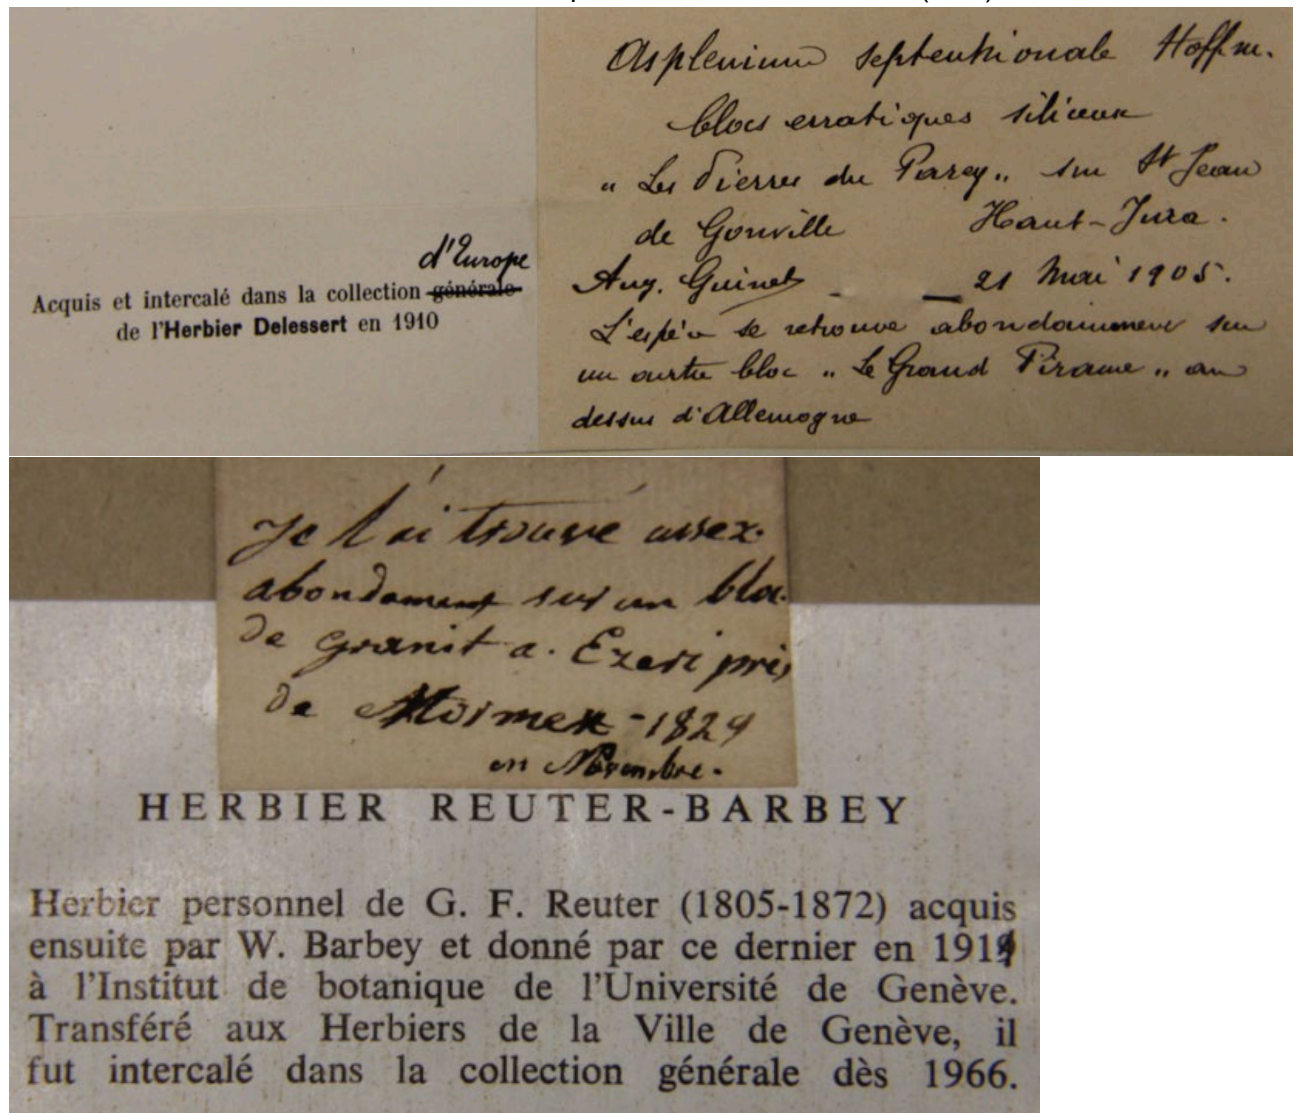 d'Europe
Acquis et intercalé dans la collection générale
de l'Herbier Delessert en 1910
Asplenium septentrionale Hoffm.
blocs erratiques siliceux
"Les Pierres du Parey" sur St Jean
de Gonville Haut-Jura.
Aug. Guinet _ _ 21 Mai 1905.
L'espèce se retrouve abondamment sur
un autre bloc "Le Grand Pirame" au
dessus d'Allemogne
Je l'ai trouvé assez
abondament sur un bloc
de granit a. Ezeri près
de Moimex - 1829
en Novembre.
HERBIER REUTER-BARBEY
Herbier personnel de G. F. Reuter (1805-1872) acquis
ensuite par W. Barbey et donné par ce dernier en 1919
à l'Institut de botanique de l'Université de Genève.
Transféré aux Herbiers de la Ville de Genève, il
fut intercalé dans la collection générale dès 1966.